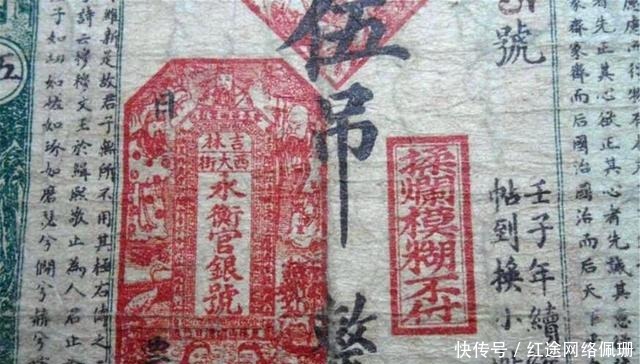 者先正其心欲正其心者先誠其意
家齊家齊而后國治國而后天
號
壬子年續
帖到換小
揉爛模糊不付
伍吊整
吉林
西大街
永衡官銀號
月
維新是故君子無所不用其極右傳之
詩云穆穆文王於緝熙敬止為人君止
子如切如磋如琢如磨瑟兮僩兮赫兮
五
快传号/红途网络佩珊